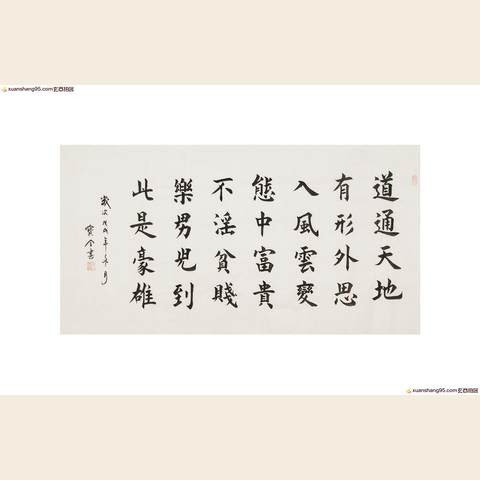 xuanshang95.com
道通天地
有形外思
入風雲變
態中富貴
不淫貧賤
樂男兒到
此是豪雄
歲次戊戌年月
書
xuanshang95.com